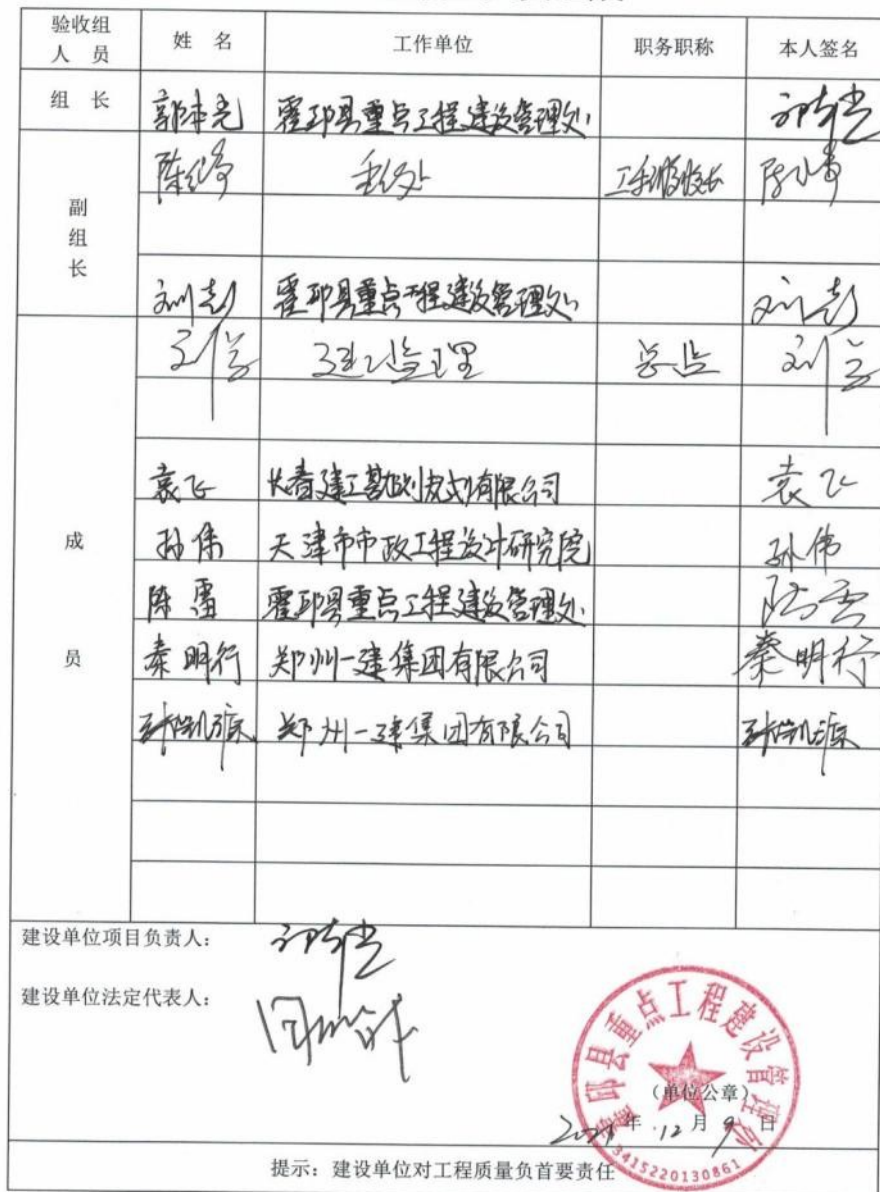 验收组人员 姓 名 工作单位 职务职称 本人签名
组 长 郭本光 霍邱县重点工程建设管理处
重点处
副组长
刘彭 霍邱县重点工程建设管理处 刘彭
监理 总监
袁飞 长春建工勘测规划有限公司 袁飞
成员
孙伟 天津市市政工程设计研究院 孙伟
陈雷 霍邱县重点工程建设管理处
秦明行 郑州一建集团有限公司 秦明行
郑州一建集团有限公司
建设单位项目负责人：
建设单位法定代表人：
霍邱县重点工程建设管理处
（单位公章）
2021年 12月 9日
3415220130861
提示：建设单位对工程质量负首要责任